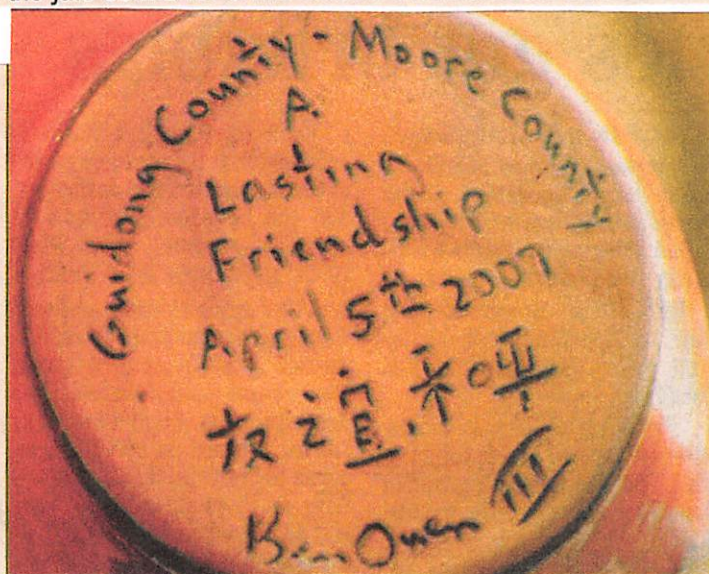 Guidong County - Moore County
A
Lasting
Friendship
April 5th 2007
友谊,和平
Ben Owen III